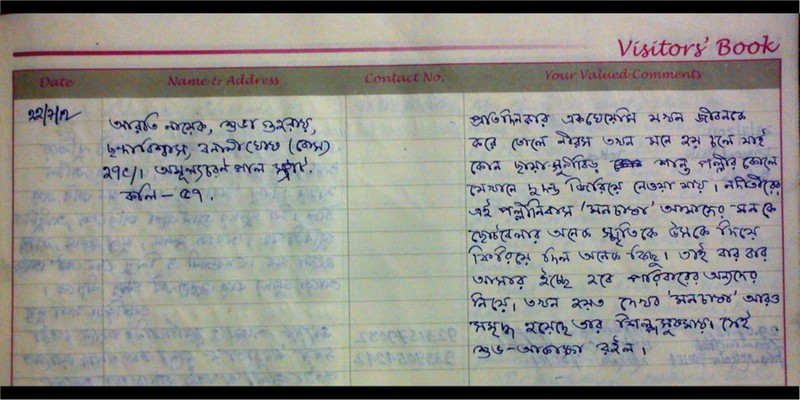 Visitors' Book
Date Name & Address Contact No. Your Valued Comments
২২/৭/১২
আরতি নায়েক, শুভ্রা গুহরায়,
ছন্দাবিশ্বাস, বনানী ঘোষ (বোস)
২৭৫/১ অমূল্যচরণ পাল স্ট্রীট.
কলি - ৫৭.
প্রতিদিনকার একঘেয়েমি যখন জীবনকে
করে তোলে নীরস তখন মনে হয় চলে যাই
কোন ছায়া-সুনিবিড় শান্ত পল্লীর কোলে
যেখানে দুদণ্ড জিরিয়ে নেওয়া যায়। নদীতীরের
এই পল্লীনিবাস 'মনচাষা' আমাদের মনকে
ছোটবেলার অনেক স্মৃতিকে উসকে দিয়ে
ফিরিয়ে দিল অনেক কিছু। তাই বার বার
আসার ইচ্ছে হবে পরিবারের অন্যদের
নিয়ে, তখন হয়ত দেখব 'মনচাষা' আরও
সমৃদ্ধ হয়েছে তার শিল্পসুষমায়। সেই
শুভ-আকাঙ্ক্ষা রইল।